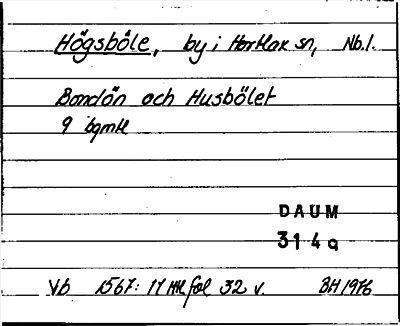 Högsböle, by i Hortlax sn, Nb.l.
Bondön och Husbölet
9 bgmtl
DAUM
314q
Vb 1567: 17 Mtl fol 32 v. BH 1976